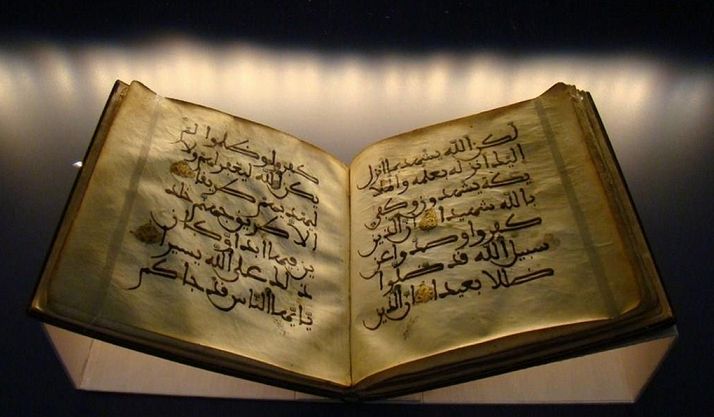 لكن الله يشهد بما انزل
اليك انزله بعلمه والملـ
ـيكة يشهدون وكفى
بالله شهيدا ان الذين
كفروا وصدوا عن
سبيل الله قد ضلوا
ضللا بعيدا ان الذين
كفروا وظلموا لم
يكن الله ليغفر لهم ولا
ليهديهم طريقا
الا طريق جهنم خلد
ين فيها ابدا وكان
ذلك على الله يسيرا
يايها الناس قد جاكم